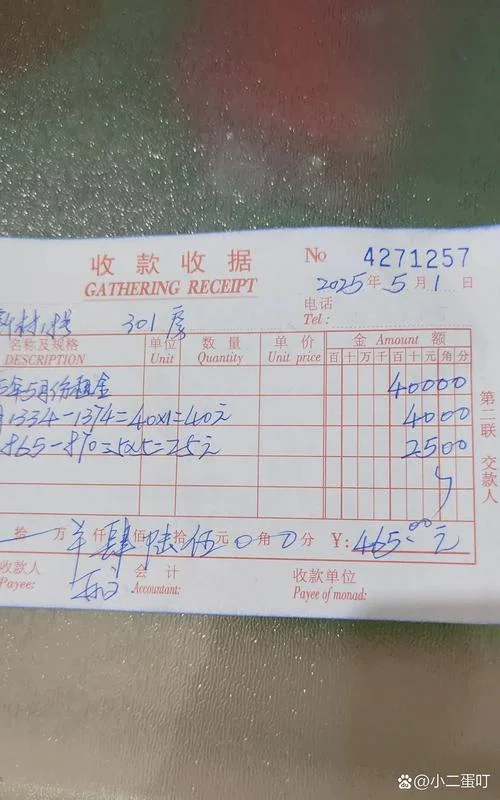 收款收据
GATHERING RECEIPT
No 4271257
2025年5月1日
电话
Tel:
301房
名称及规格 单位 数量 单价 金 Amount 额
DESCRIPTION Unit Quantity Unit price 百十万千百十元角分
年5月份租金 40000
1334-1374=40x1=40元 4000
865-870=5x5=25元 2500
拾万仟肆佰陆拾伍元0角0分 ¥:465.00元
收款人 会计 收款单位
Payee: Accountant: Payee of monad:
第二联 交款人
小二蛋叮